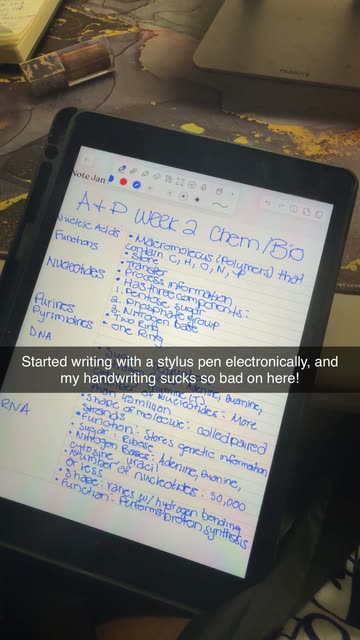 Note Jan
A & P Week 2 Chem/Bio
Nucleic Acids
• Macromolecules (Polymers) that
contain C, H, O, N, & P
Functions
• Store
• Transfer
• Process information
Nucleotides
• Has three components:
1. Pentose sugar
2. Phosphate group
3. Nitrogen base
Purines
• Two Ring
Pyrimidines
• One Ring
DNA
Started writing with a stylus pen electronically, and
my handwriting sucks so bad on here!
Adenine, Guanine,
Number of Nucleotides: More
than
• Shape of molecule: coiled paired
strands
• Function: Stores genetic information
RNA
• Sugar: Ribose
• Nitrogen Bases: Adenine, Guanine,
cytosine, uracil
• Number of nucleotides: 50,000
or less
• Shape: varies w/ hydrogen bonding
• Function: Performs protein synthesis